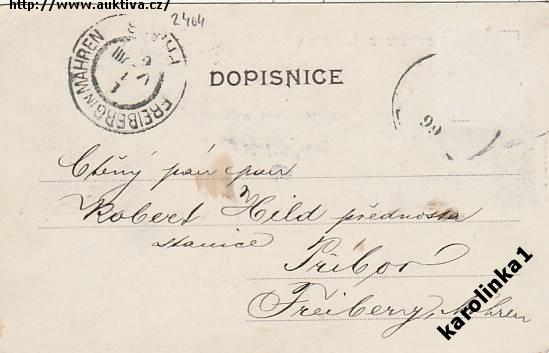 http://www.auktiva.cz/
2404
FREIBERG IN MÄHREN
PŘÍBOR
DOPISNICE
99
Ctěný pán pan
Robert Hild přednosta
stanice
Příbor
Freiberg, Mähren
karolinka1